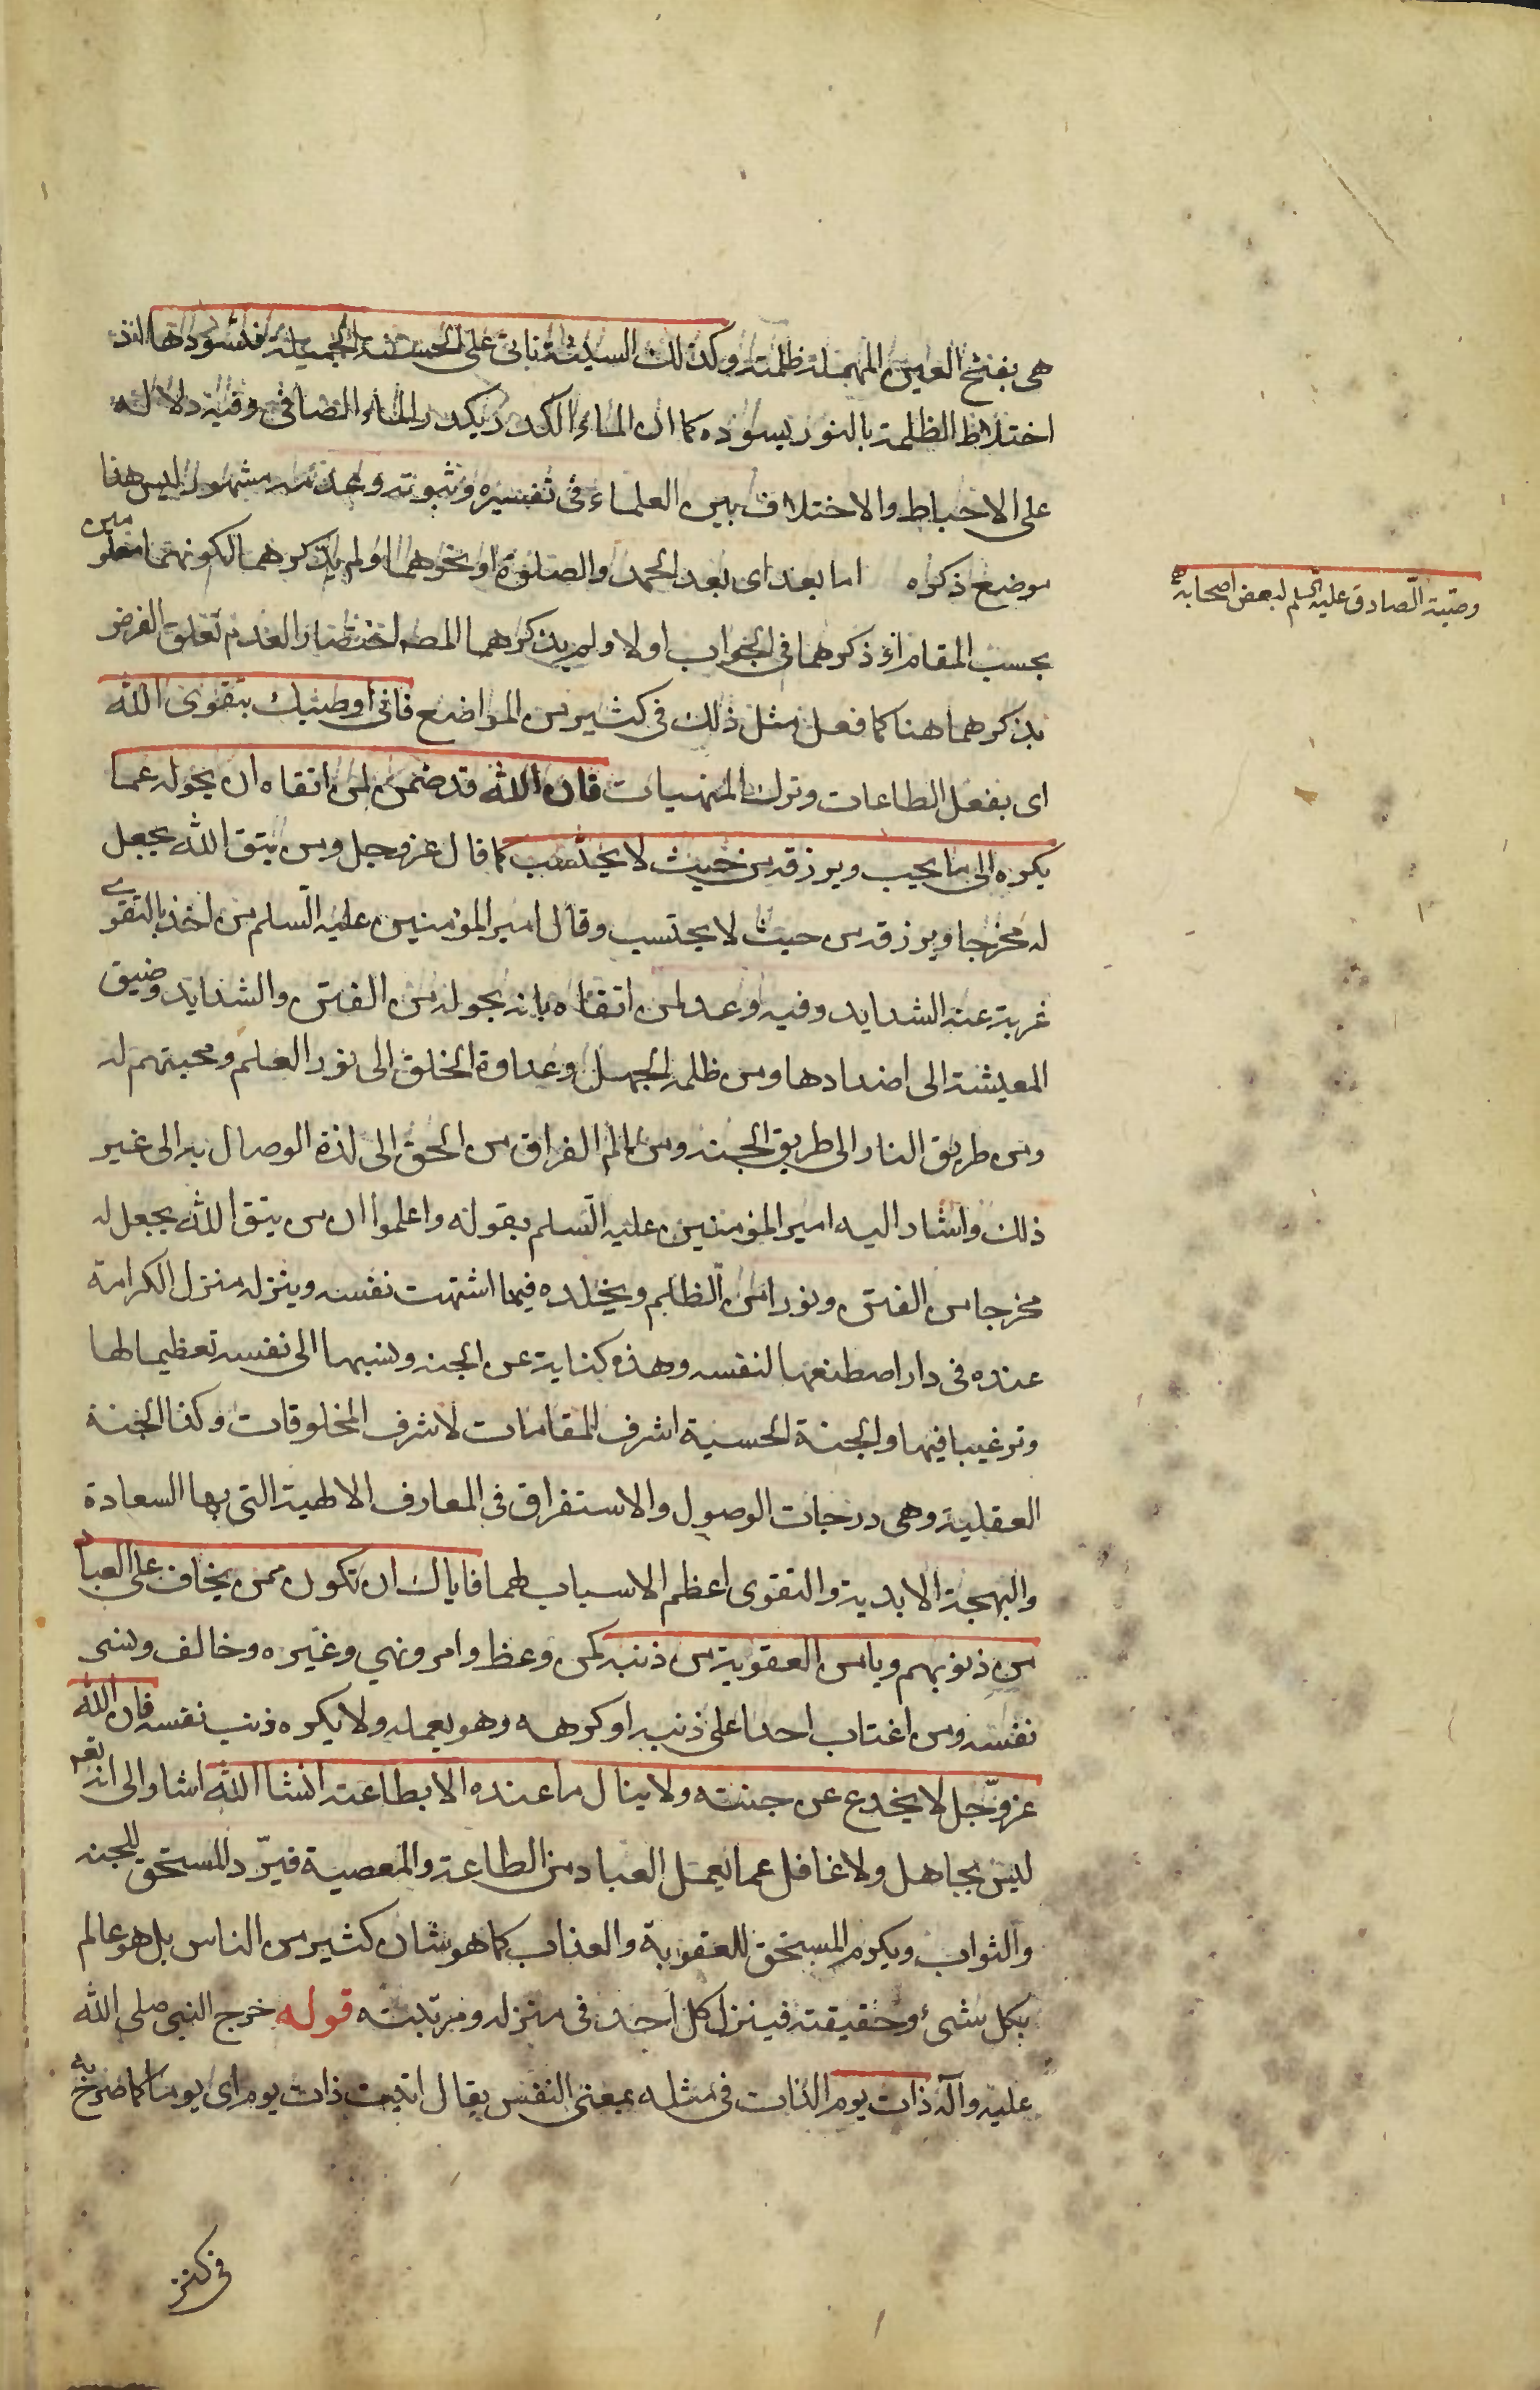 هى بفتح العين المهملة ظلمة وكذلك السيئة تاتى على الحسنة الجميلة فتسودها اذ
اختلاط الظلمة بالنور يسوده كما ان الماء الكدر يكدر الماء الصافى وفيه دلالة
على الاحباط والاختلاف بين العلماء فى تفسيره وثبوته وعدمه مشهور ليس هنا
موضع ذكره اما بعد اى بعد الحمد والصلوة او نحوهما ولم يذكرهما لكونهما معلومين
بحسب المقام او ذكرهما فى الجواب اولا ولم يذكرهما المصه اختصارا لعدم تعلق الغرض
بذكرهما هنا كما فعل مثل ذلك فى كثير من المواضع فانى اوصيك بتقوى الله
اى بفعل الطاعات وترك المنهيات فان الله قد ضمن لمن اتقاه ان يحوله عما
يكره الى ما يحب ويرزقه من حيث لا يحتسب كما قال عز وجل ومن يتق الله يجعل
له مخرجا ويرزقه من حيث لا يحتسب وقال امير المؤمنين عليه السلم من اخذ بالتقوى
غربت عنه الشدايد وفيه وعد لمن اتقاه بانه يحوله من الفتن والشدايد وضيق
المعيشة الى اضدادها ومن ظلمة الجهل وعداوة الخلق الى نور العلم ومحبتهم له
ومن طريق النار الى طريق الجنة ومن الم الفراق من الحق الى لذة الوصال به الى غير
ذلك واشار اليه امير المؤمنين عليه السلم بقوله واعلموا ان من يتق الله يجعل له
مخرجا من الفتن ونورا من الظلم ويخلده فيما اشتهت نفسه وينزله منزل الكرامة
عنده فى دار اصطنعها لنفسه وهذه كناية عن الجنة ونسبها الى نفسه تعظيما لها
وترغيبا فيها والجنة الحسية اشرف المقامات لاشرف المخلوقات وكذا الجنة
العقلية وهى درجات الوصول والاستغراق فى المعارف الالهية التى بها السعادة
والبهجة الابدية والتقوى اعظم الاسباب لهما فاياك ان تكون ممن يخاف على العباد
من ذنوبهم ويامن العقوبة من ذنبه كمن وعظ وامر ونهى وغيره وخالف ونسى
نفسه ومن اغتاب احدا على ذنب او كرهه وهو يعمله ولا يكره ذنب نفسه فان الله
عز وجل لا يخدع عن جنته ولا ينال ما عنده الا بطاعته انشا الله اشار الى انه تعه
ليس بجاهل ولا غافل عما يعمل العباد من الطاعة والمعصية فيرد المستحق للجنة
والثواب ويكرم المستحق للعقوبة والعذاب كما هو شان كثير من الناس بل هو عالم
بكل شىء وحقيقته فينزل كل احد فى منزله ومرتبته قوله خرج النبى صلى الله
عليه وآله ذات يوم الذات فى مثله بمعنى النفس يقال اتيت ذات يوم اى يوما كما صرح به
وصية الصادق عليه السلم لبعض اصحابه
فى كنز